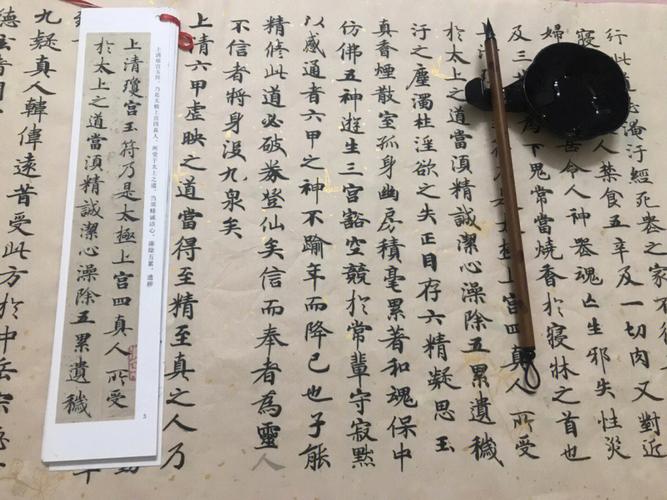 行此道忌淹汙經死喪之家不得
寢
人禁食五辛及一切肉又對近
婦
令人神喪魂亡生邪失性災
及三
下鬼常當燒香於寢牀之首也
四真人所受
於太上之道當須精誠潔心澡除五累遺穢
汙之塵濁杜淫欲之失正目存六精凝思玉
真香煙散室孤身幽房積毫累著和魂保中
仿佛五神遊生三宮豁空競於常輩守寂默
以感通者六甲之神不踰年而降己也子能
精修此道必破券登仙矣信而奉者為靈人
不信者將身沒九泉矣
上清六甲虛映之道當得至精至真之人乃
上清瓊宮玉符，乃是太極上宮四真人，所受于太上之道。當須精誠潔心，澡除五累，遺穢
上清瓊宮玉符乃是太極上宮四真人所受
於太上之道當須精誠潔心澡除五累遺穢
5
九疑真人韓偉遠昔受此方於中岳宋德
德玄者周